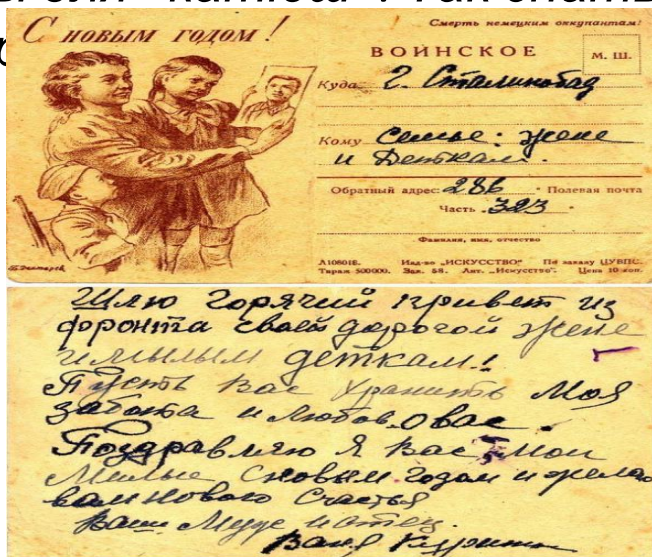 С НОВЫМ ГОДОМ!
Смерть немецким оккупантам!
ВОИНСКОЕ
М. Ш.
Куда г. Сталинобад
Кому Семье: жене
и Деткам.
Обратный адрес: 286 Полевая почта
Часть 323
Фамилия, имя, отчество
Изд-во „ИСКУССТВО“ По заказу ЦУВПС.
Тираж 500000. Зак. 58. Лит. „Искусство“. Цена 10 коп.
Шлю горячий привет из
фронта своей дорогой жене
и милым деткам!
Пусть вас хранить моя
забота и любов о вас.
Поздравляю я вас мои
милые с новым годом и желаю
вам нового счастья
Ваш муж и отец.
Ваня